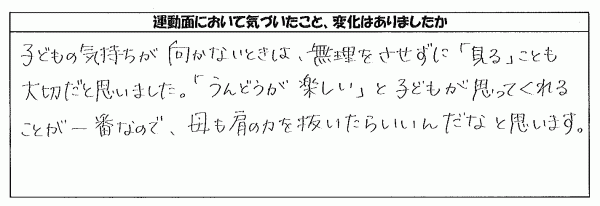 運動面において気づいたこと、変化はありましたか
子どもの気持ちが向かないときは、無理をさせずに「見る」ことも
大切だと思いました。「うんどうが楽しい」と子どもが思ってくれる
ことが一番なので、母も肩の力を抜いたらいいんだなと思います。